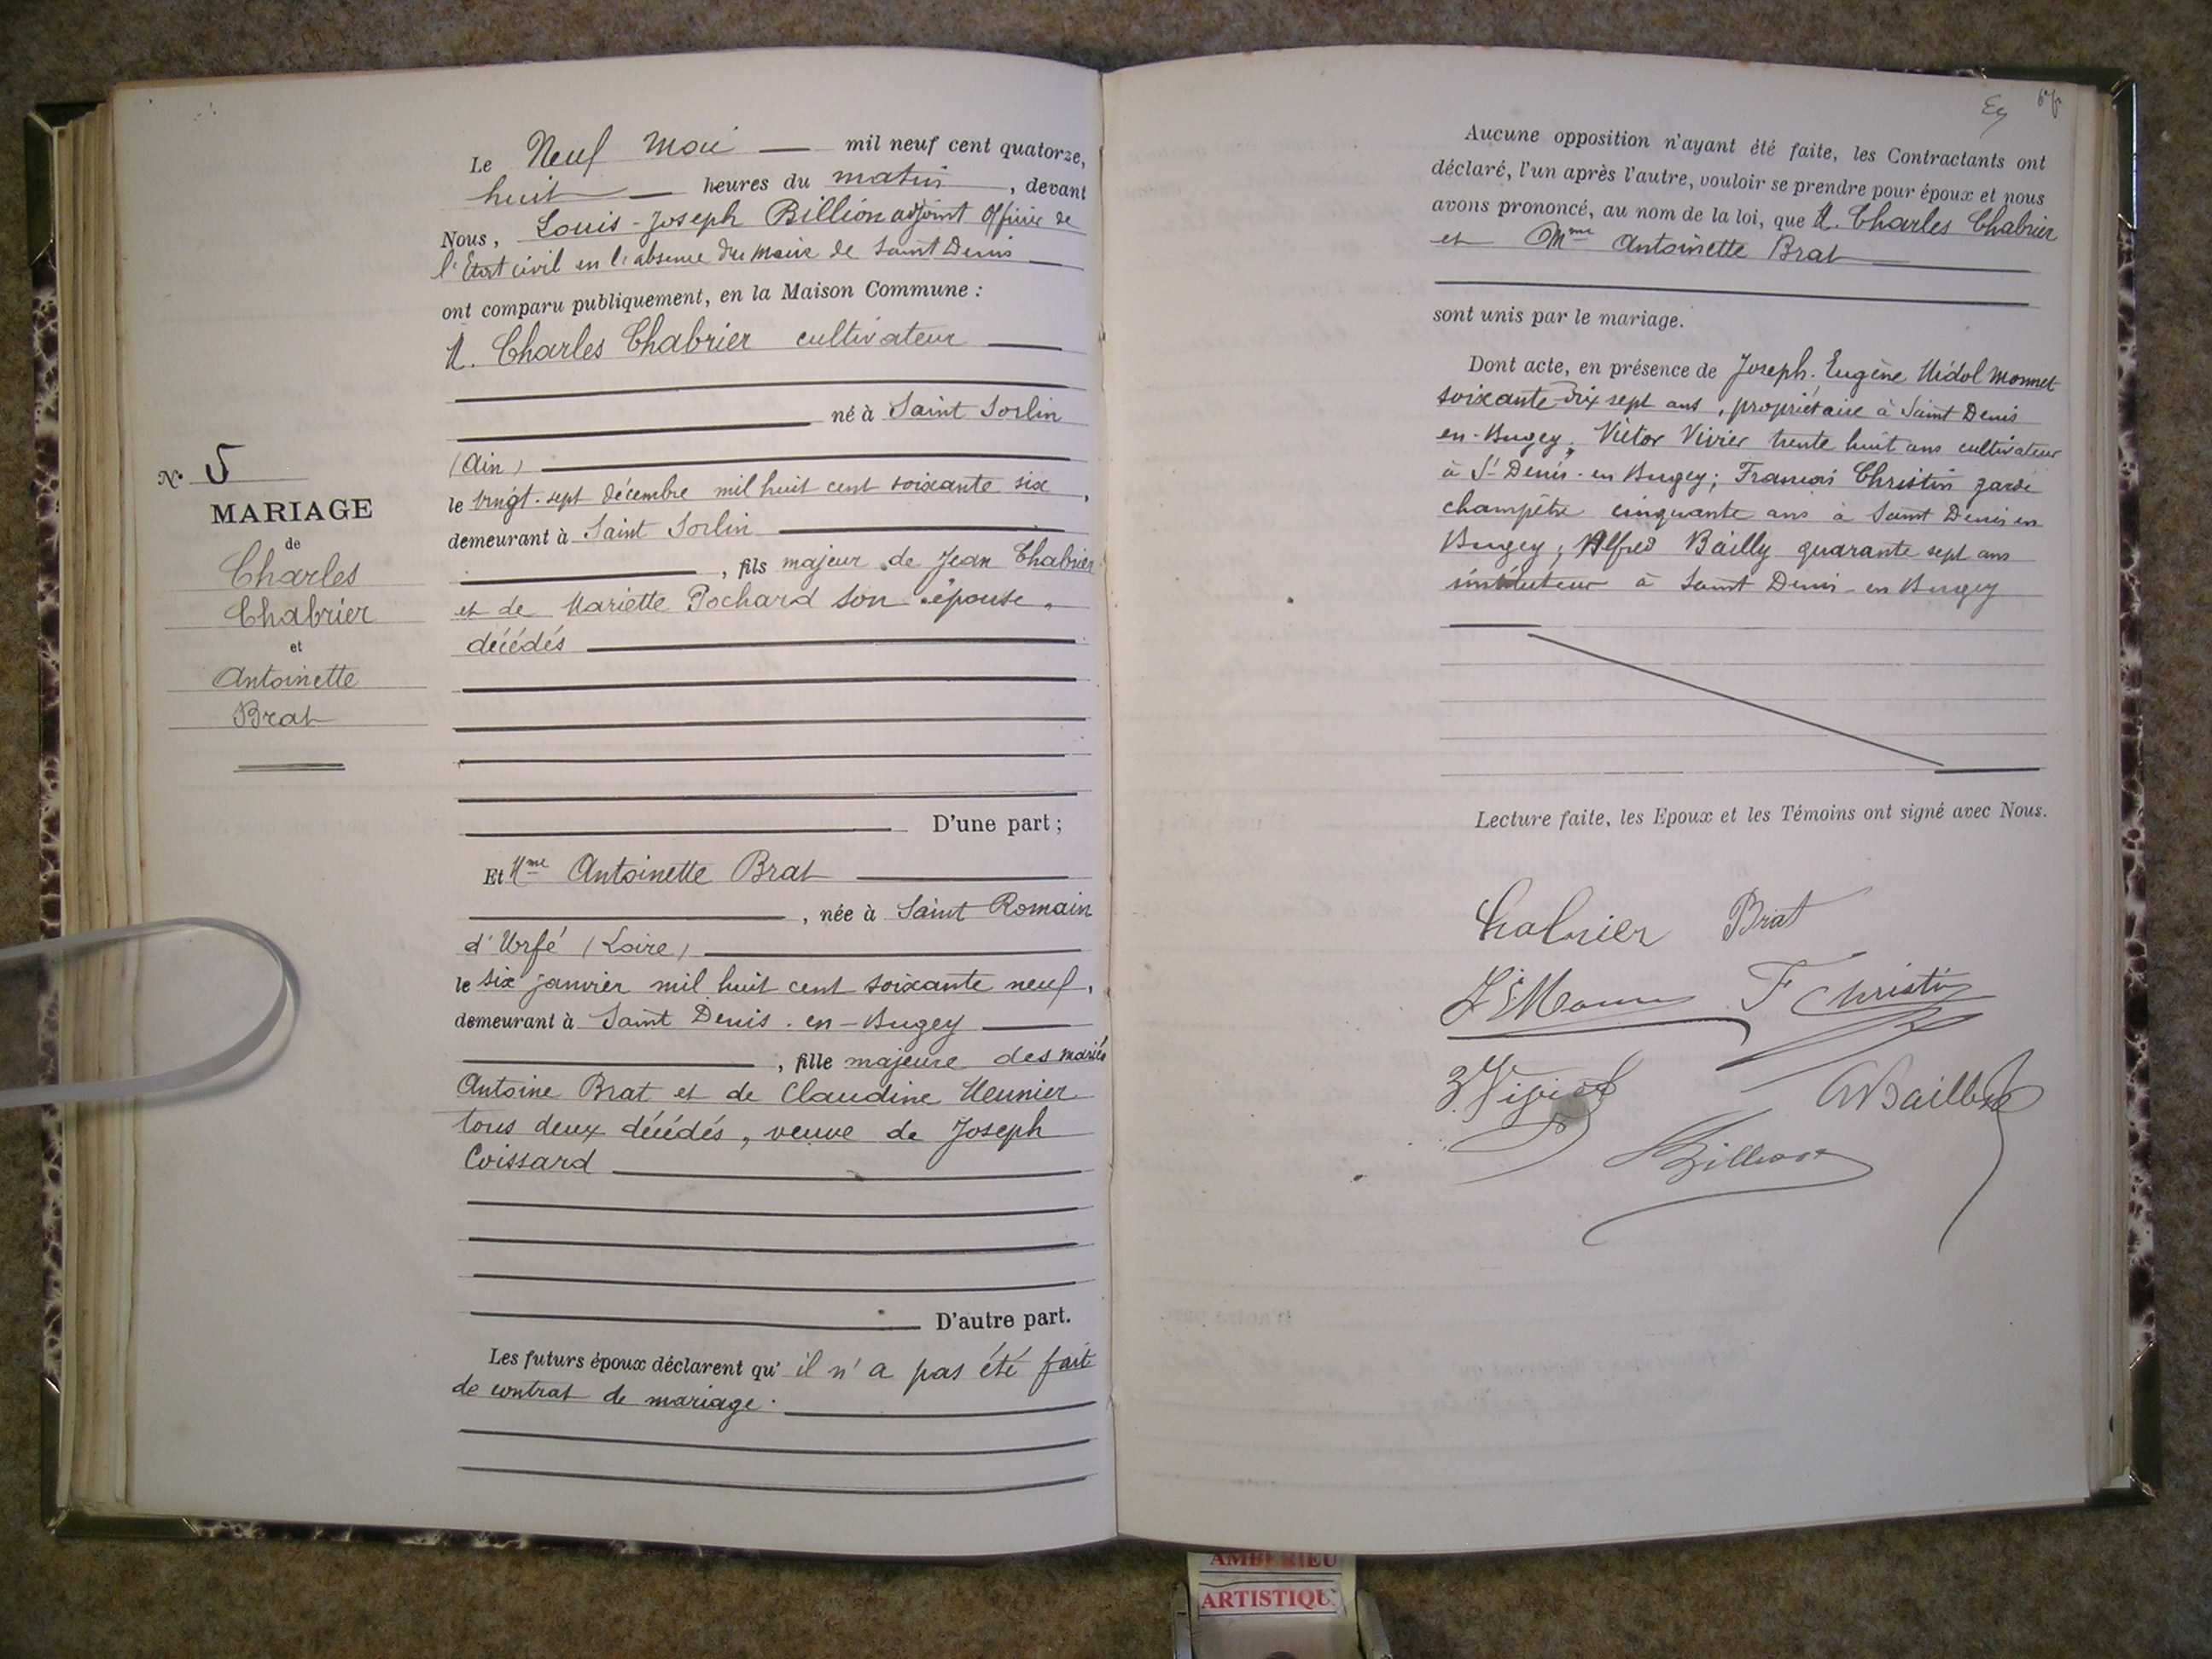 N° 5
MARIAGE
de
Charles
Chabrier
et
Antoinette
Brat
Le Neuf Mai mil neuf cent quatorze,
huit heures du matin, devant
Nous, Louis-Joseph Billion adjoint officier de
l'Etat civil en l'absence du maire de Saint Denis
ont comparu publiquement, en la Maison Commune :
M. Charles Chabrier cultivateur
né à Saint Sorlin
(Ain)
le vingt-sept décembre mil huit cent soixante six,
demeurant à Saint Sorlin
, fils majeur de Jean Chabrier
et de Mariette Pochard son épouse,
décédés
D'une part ;
Et Mme Antoinette Brat
, née à Saint Romain
d'Urfé (Loire)
le six janvier mil huit cent soixante neuf,
demeurant à Saint Denis-en-Bugey
, fille majeure des mariés
Antoine Brat et de Claudine Meunier
tous deux décédés, veuve de Joseph
Coissard
D'autre part.
Les futurs époux déclarent qu'il n'a pas été fait
de contrat de mariage.
Aucune opposition n'ayant été faite, les Contractants ont
déclaré, l'un après l'autre, vouloir se prendre pour époux et nous
avons prononcé, au nom de la loi, que M. Charles Chabrier
et Mme Antoinette Brat
sont unis par le mariage.
Dont acte, en présence de Joseph-Eugène Midol Monnet
soixante-dix sept ans, propriétaire à Saint Denis
en-Bugey; Victor Vivier trente huit ans cultivateur
à St Denis-en Bugey; François Christin garde
champêtre cinquante ans à Saint Denis en
Bugey; Alfred Bailly quarante sept ans
instituteur à Saint Denis-en Bugey
Lecture faite, les Epoux et les Témoins ont signé avec Nous.
Chabrier Brat
F Christin
Vivier
ABailly
Billion
AMBERIEU
ARTISTIQU